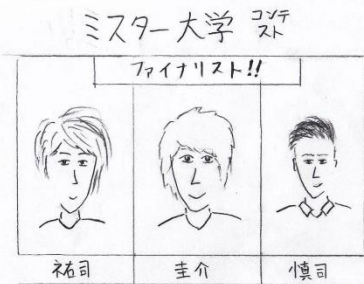 ミスター大学 コンテスト
ファイナリスト!!
祐司
圭介
慎司